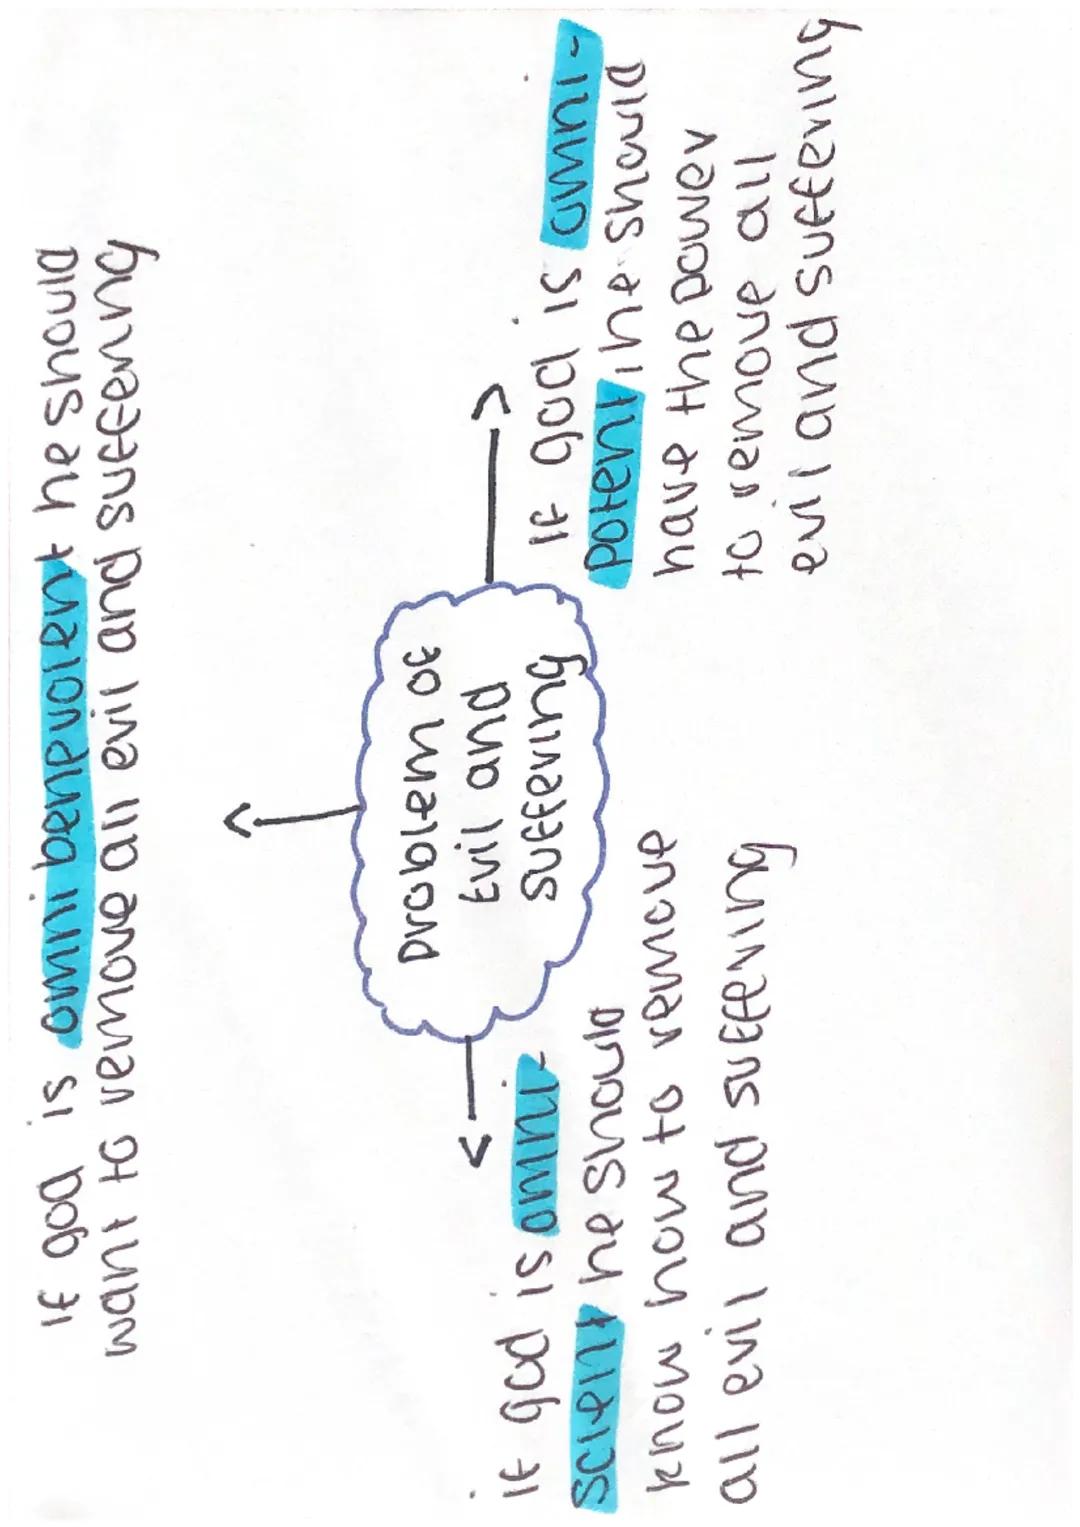 if god is omni benevolent he should
want to remove all evil and suffering
problem of
Evil and
suffering
if god is omni-
scient he should
know how to remove
all evil and suffering
If god is omni-
potent he should
have the power
to remove all
evil and suffering